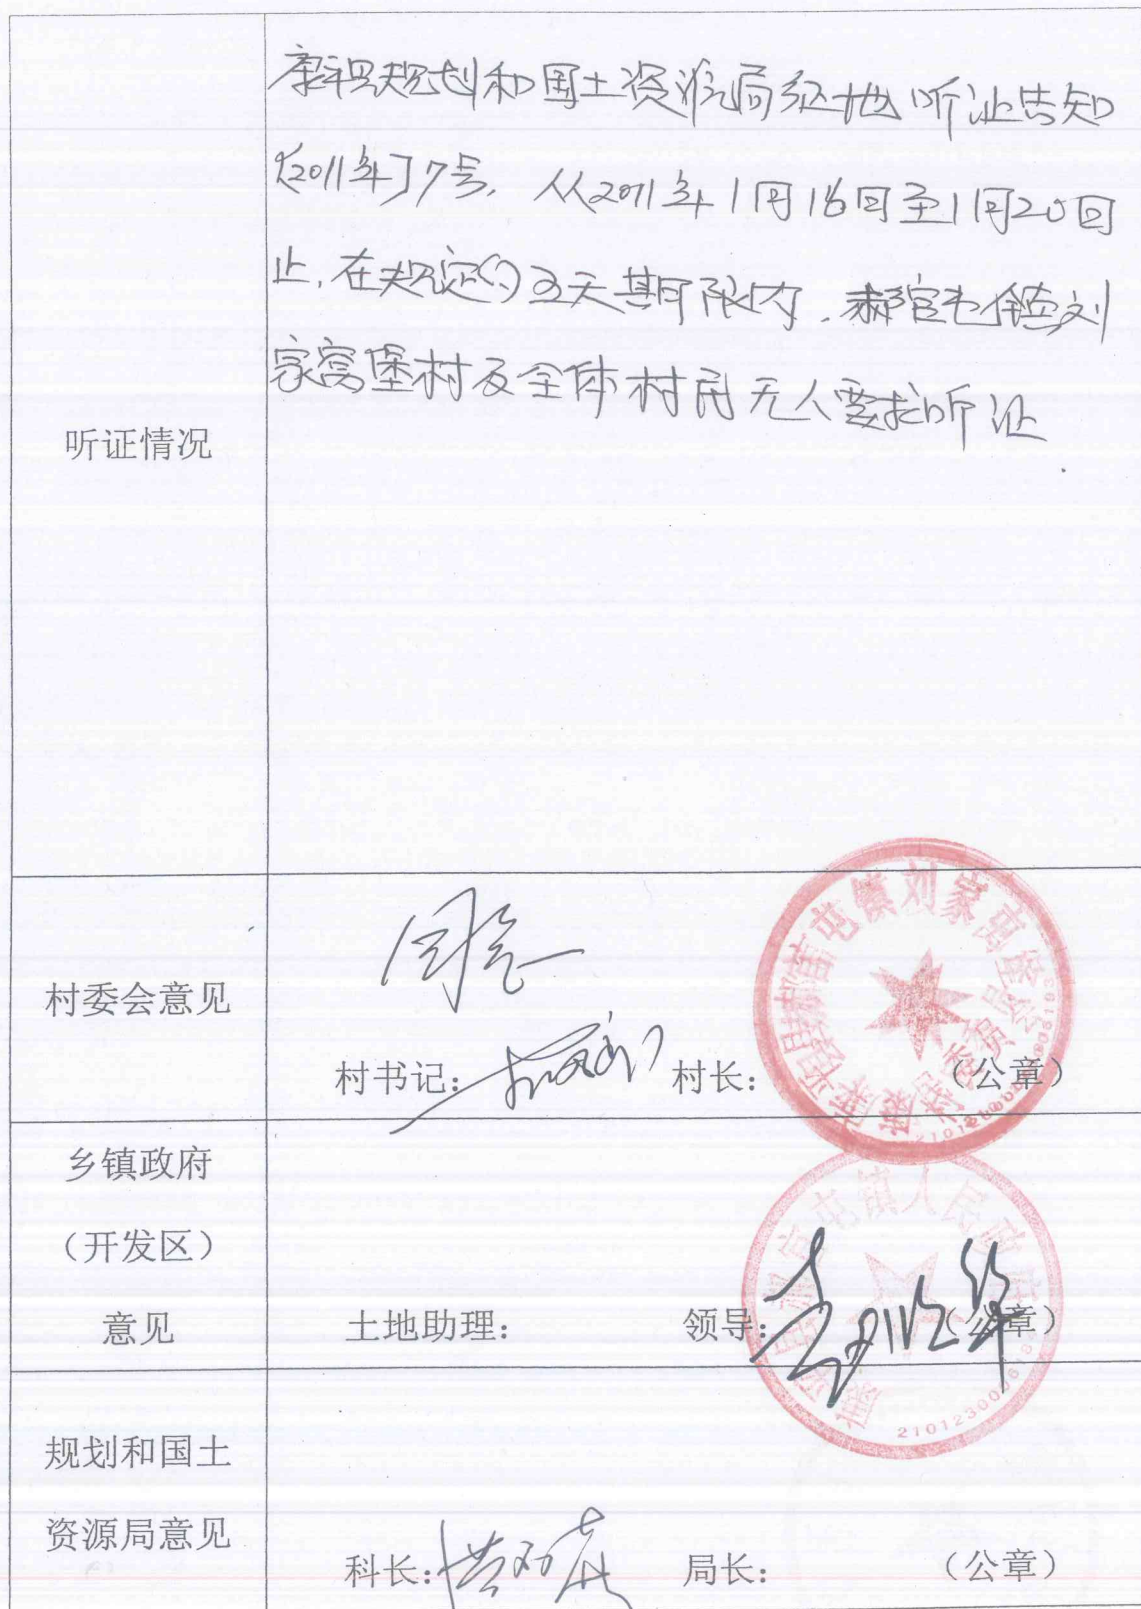 康平县规划和国土资源局征地听证告知
[2011年]7号. 从2011年1月16日至1月20日
止,在规定的五天期限内,郝官屯镇刘
家窝堡村及全体村民无人要求听证
听证情况
村委会意见
村书记: 村长: (公章)
乡镇政府
(开发区)
意见
土地助理: 领导: (公章)
规划和国土
资源局意见
科长: 局长: (公章)